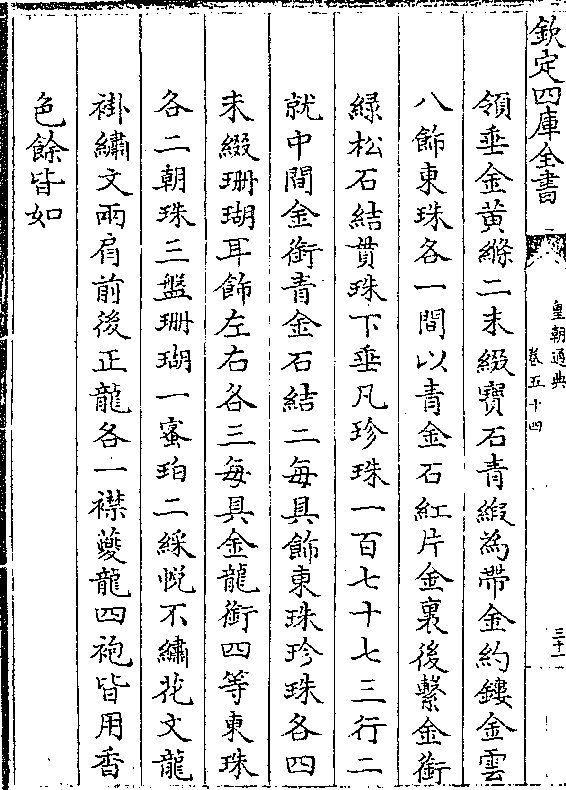 欽定四庫全書
皇朝通典
卷五十四
三十一
領垂金黄縧二末綴寳石青緞為帶金約鏤金雲
八飾東珠各一間以青金石紅片金裏後繫金銜
緑松石結貫珠下垂凡珍珠一百七十七三行二
就中間金銜青金石結二每具飾東珠珍珠各四
末綴珊瑚耳飾左右各三每具金龍銜四等東珠
各二朝珠三盤珊瑚一蜜珀二綵帨不繡花文龍
褂繡文兩肩前後正龍各一襟夔龍四袍皆用香
色餘皆如